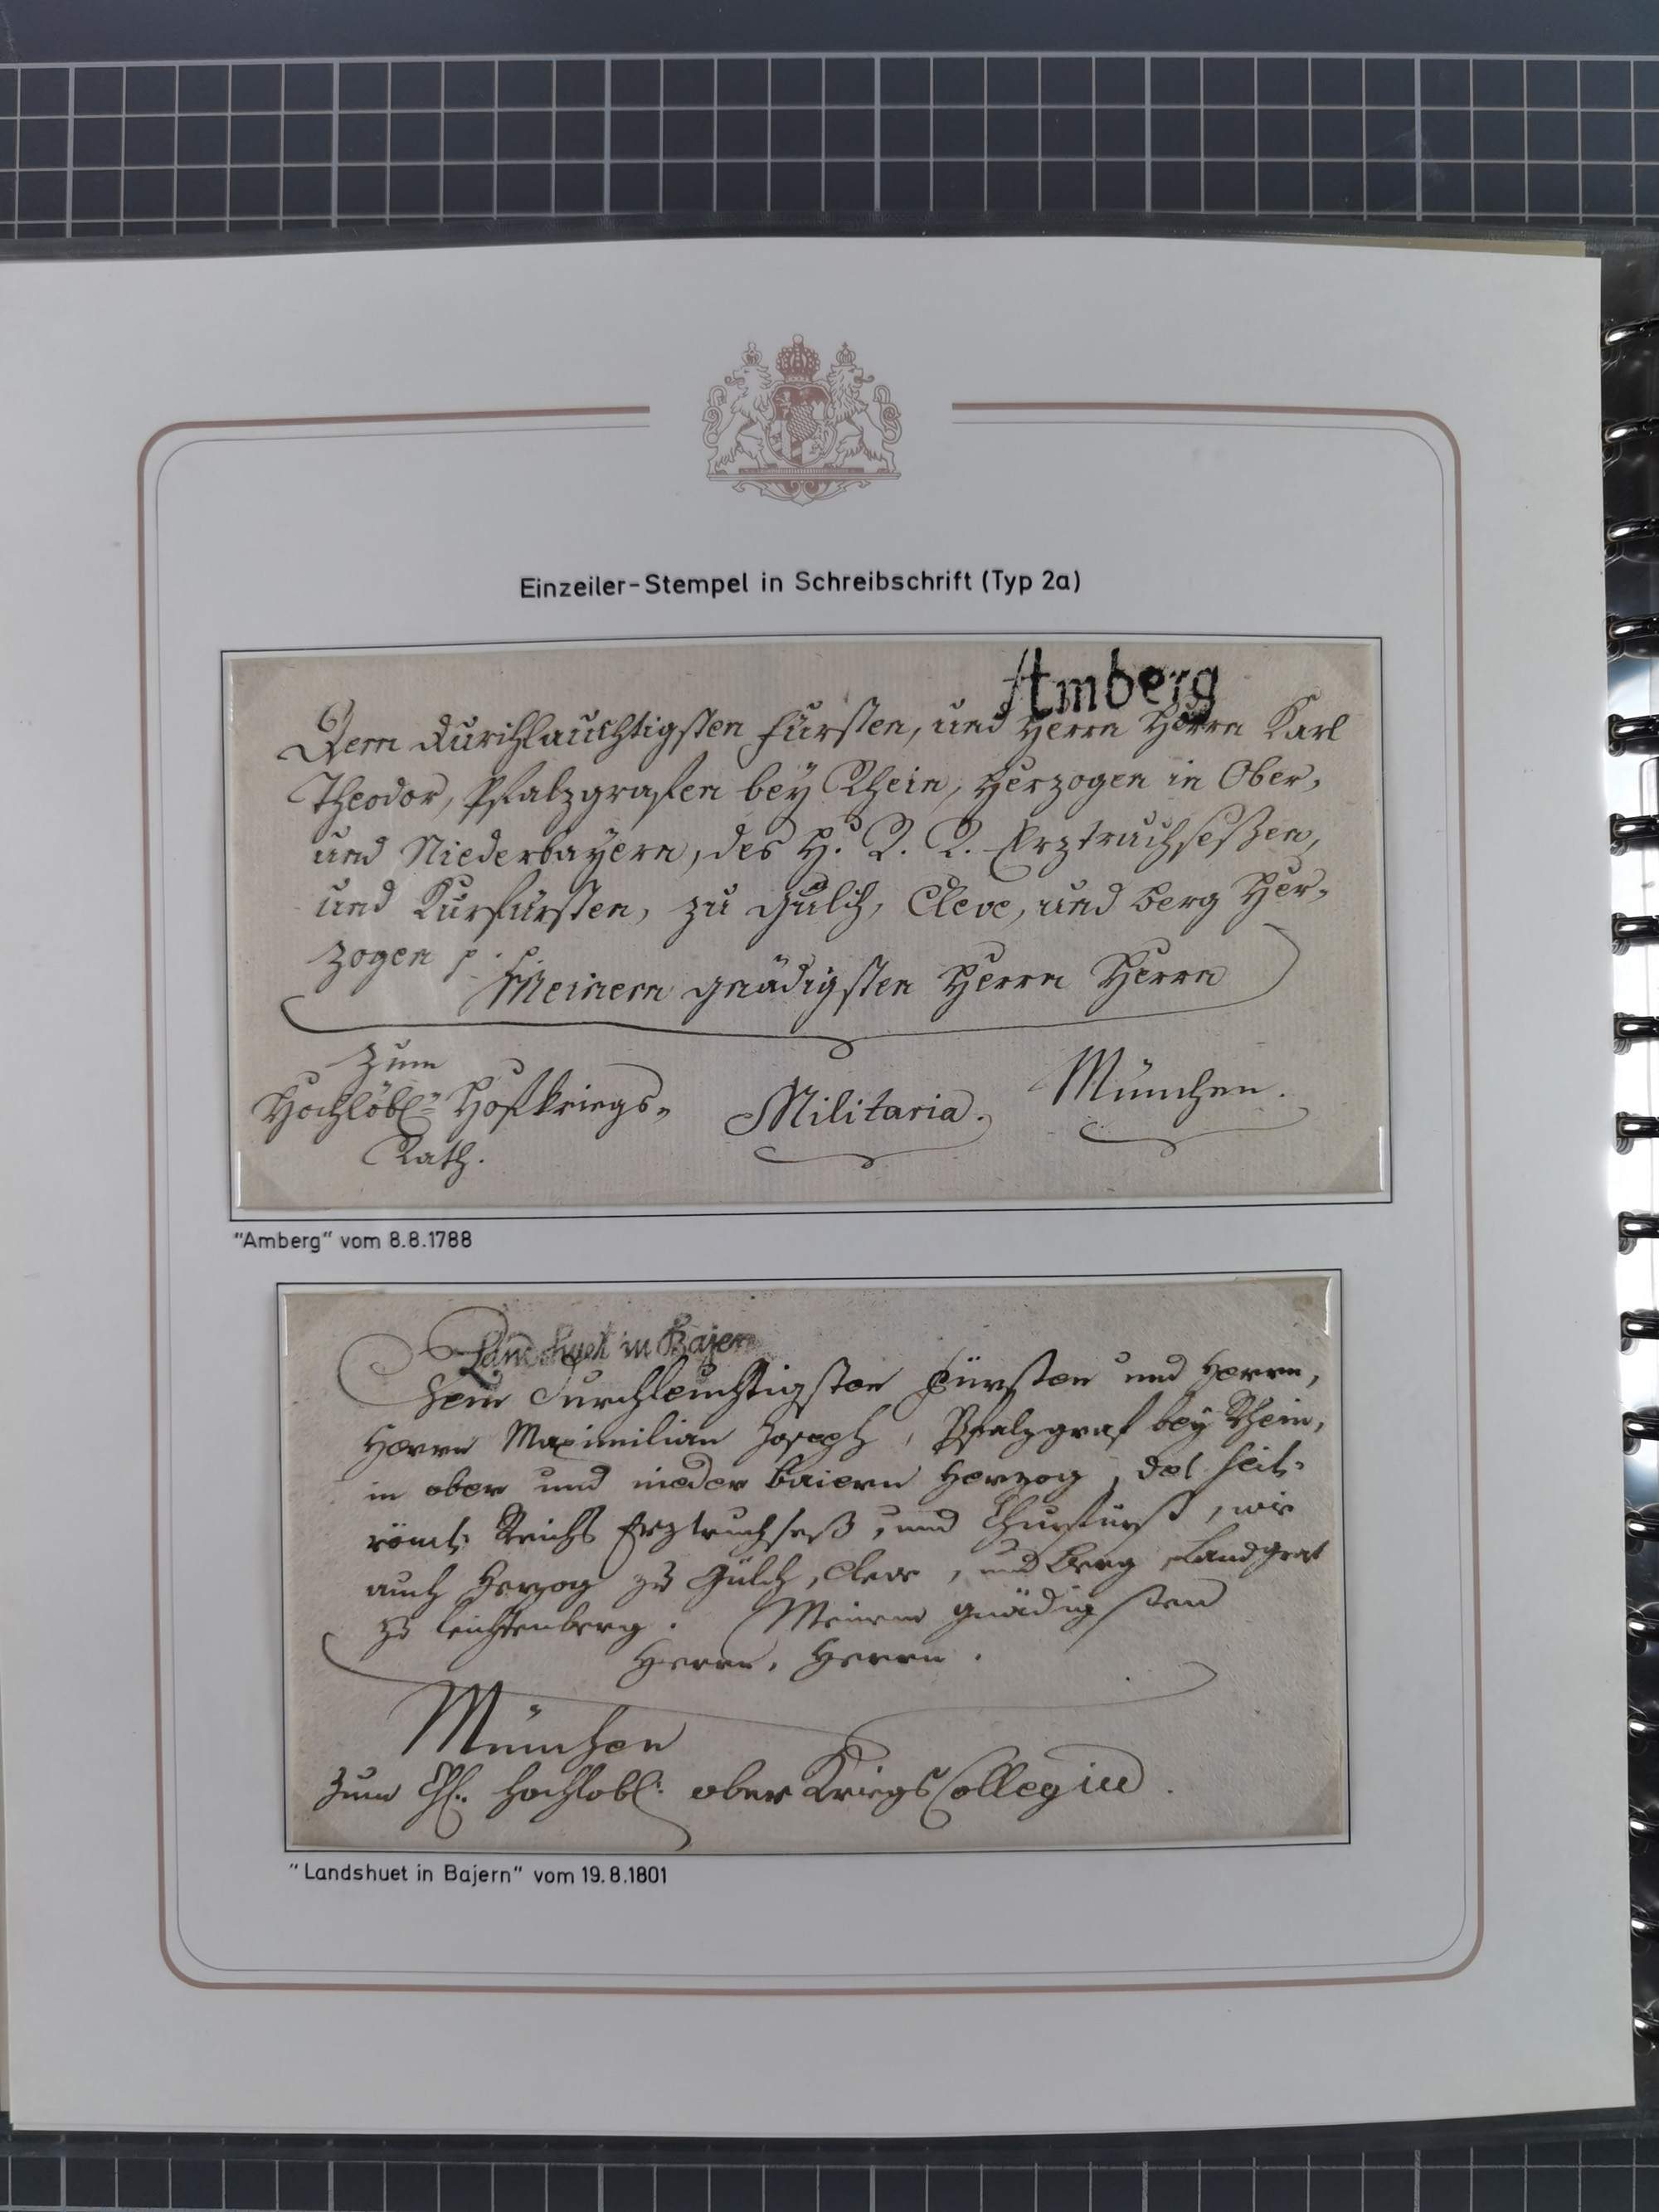 Einzeiler-Stempel in Schreibschrift (Typ 2a)
Amberg
Dem durchlauchtigsten Fürsten, und Herrn Herrn Karl
Theodor, Pfalzgrafen bey Rhein, Herzogen in Ober-
und Niederbayern, des H. R. R. Erztruchseßen,
und Kurfürsten, zu Gülch, Cleve, und Berg Her-
zogen p. p.
Meinem gnädigsten Herrn Herrn
Zum
Hochlöbl. Hofkriegs-
Rath.
Militaria.
München.
"Amberg" vom 8.8.1788
Landshuet in Bajern
Dem Durchleuchtigsten Fürsten und Herrn,
Herrn Maximilian Joseph, Pfalzgraf bey Rhein,
in ober und nieder Baiern Herzog, des heil:
römL: Reichs Erztruchseß, und Churfürst, wie
auch Herzog zu Gülch, Cleve, und Berg Landgraf
zu Leichtenberg. Meinem gnädigsten
Herrn, Herrn.
München
Zum hochlobl: ober Kriegs Collegiu
"Landshuet in Bajern" vom 19.8.1801